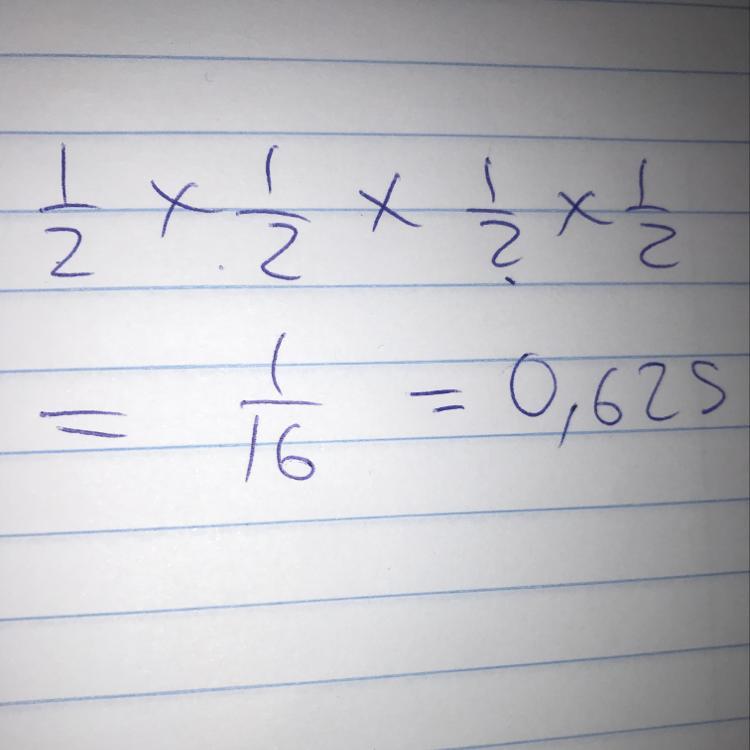 1/2 × 1/2 × 1/2 × 1/2
= 1/16 = 0,625